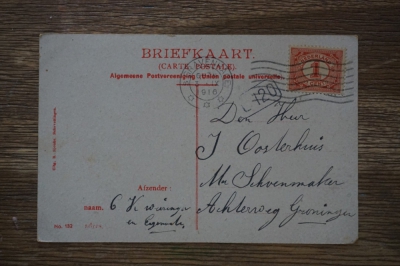 BRIEFKAART.
(CARTE POSTALE)
Algemeene Postvereeniging Union postale universelle.
NEDERLAND
1
CENT
1916
120
Den Heer
J Oosterhuis
Mr Schoenmaker
Achterweg Groningen
Afzender:
NAAM.
No. 102